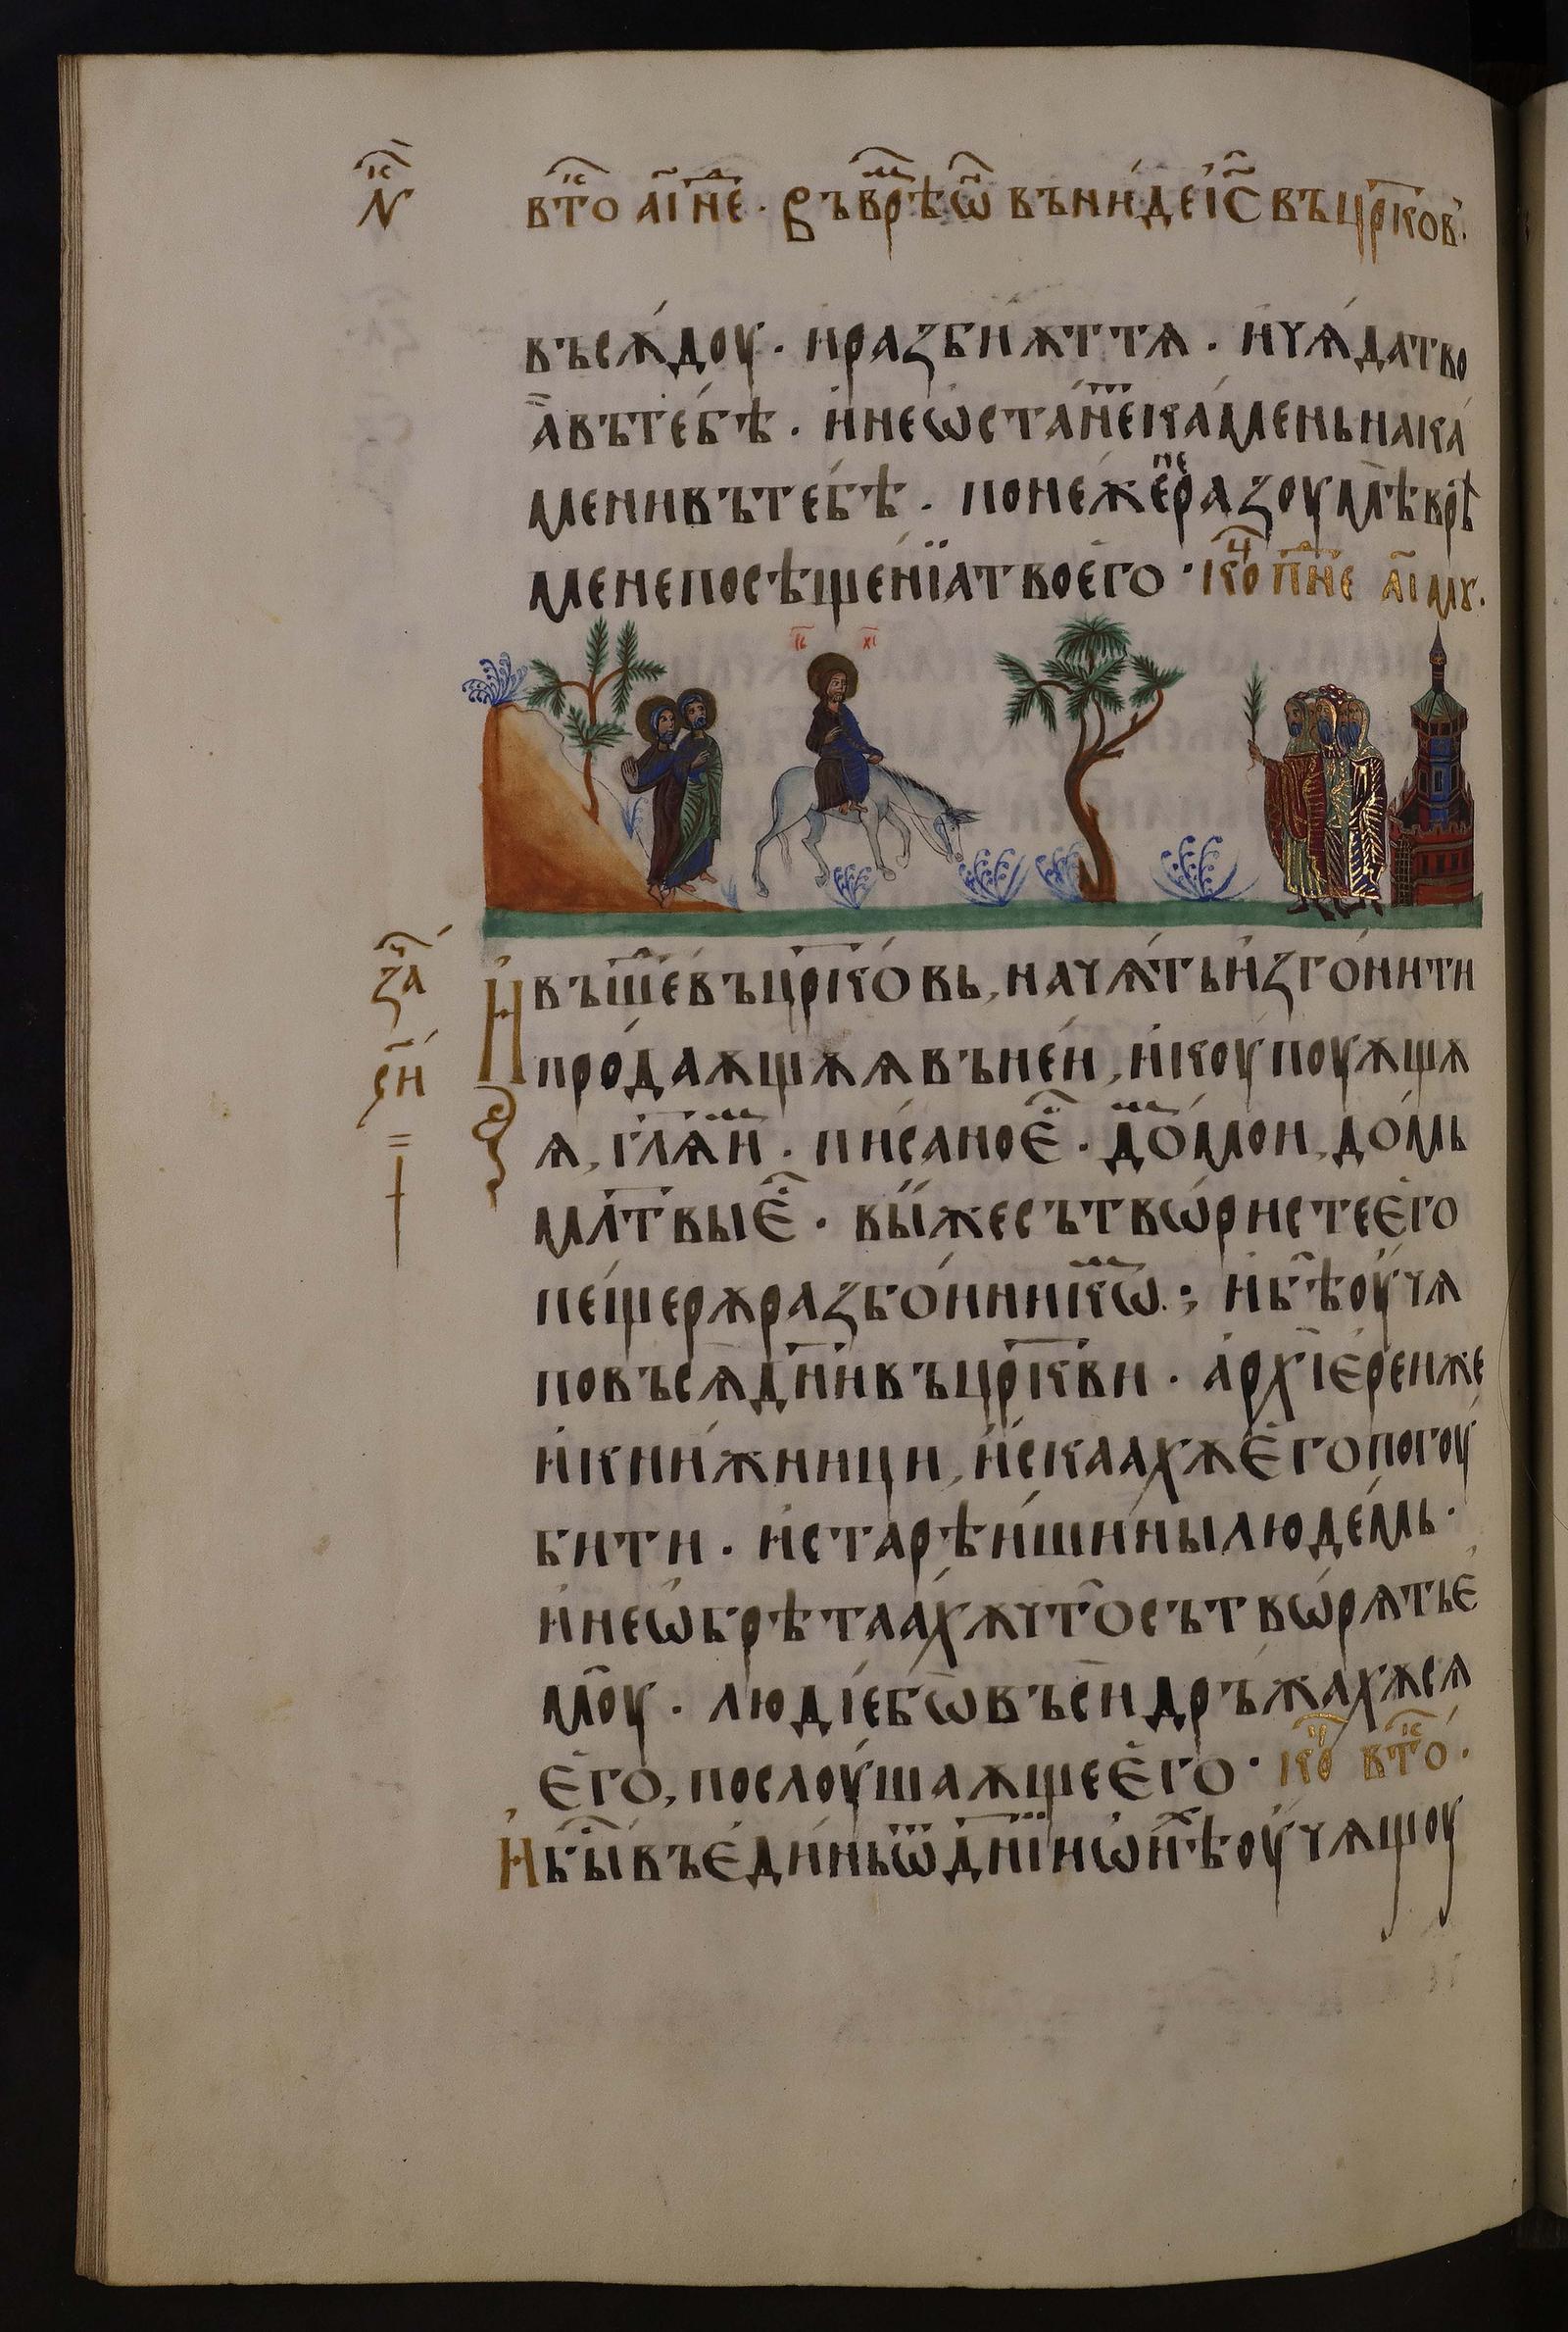 N҃ⷭ҇ вт҃о а҃і н҃е · въ врѣⷨ ѿ въни́де і҃с въ цр҃ковⸯ.
въсѫ́доу · и҆ разбиѫт тѧ · и҆ чѧ́да тво
а҆̀ въ те́бѣ · и҆ не ѡ҆ста́неⷮ ка́мень на ка́
мени въ те́бѣ · поне́же не разоумѣ врѣ́
мене посѣще́нїа твоего̀ · коⷰ҇ п҃не а҃і мꙋ.
і҃с х҃с
И҆ въше́ въ цр҃ко́вь, начѧ́ть и҆згони́ти
про́даѫщѫѧ въ не́и, и҆ коупоуѫщѧ
ѧ, гл҃ѧ иⷨ · пи́сано є҆ⷭ · до́ⷨ мои, до́мь
мл҃твы є҆ⷭ · вы́ же сътвѡ́ристе є҆го
пе́щерѫ разбо́иникѡⷨ ⁖ и҆ бѣ̀ оу҆чѧ
по въсѧ дн҃и въ цр҃кви · а҆рхїе҆ре́и же
и҆ кни́жници, и҆ска́ахѫ є҆го погоу
бити · и҆ старѣ́ишины людемь ·
и҆ не ѡ҆брѣтаа́хѫ что̀ сътвѡ́рѧть є҆
моу̀ · людїе бѡ въси дръжахѫсѧ
є҆го̀, послоу́шаѫще є҆го̀ · коⷰ҇ вт҃о ·
И҆ бы́ⷭ въ є҆ди́нь ѿ дн҃їи ѡ҆нѣⷯ оу҆чѧщоу
заⷱ҇
с҃н